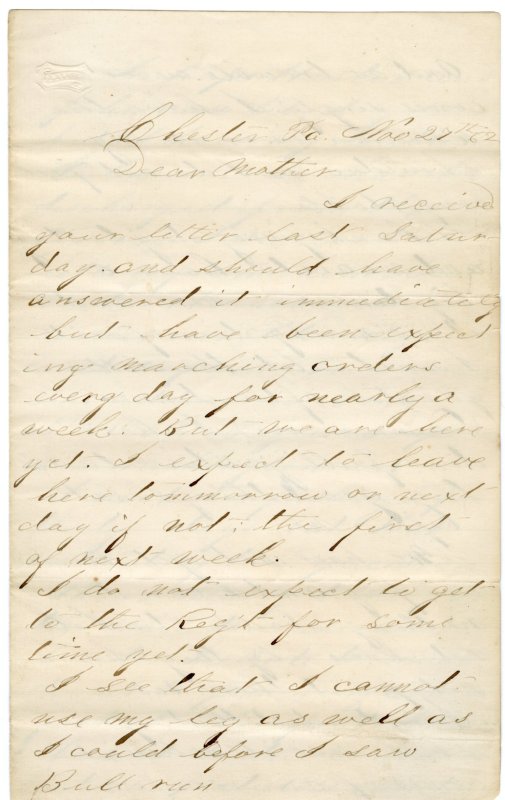 Chester Pa. Nov 27th 62
Dear Mother
I received
your letter last Satur-
day. and should have
answered it immediately
but have been expect
ing marching orders
every day for nearly a
week. But we are here
yet. I expect to leave
here tommorrow or next
day if not; the first
of next week.
I do not expect to get
to the Reg't for some
time yet.
I see that I cannot
use my leg as well as
I could before I saw
Bull run